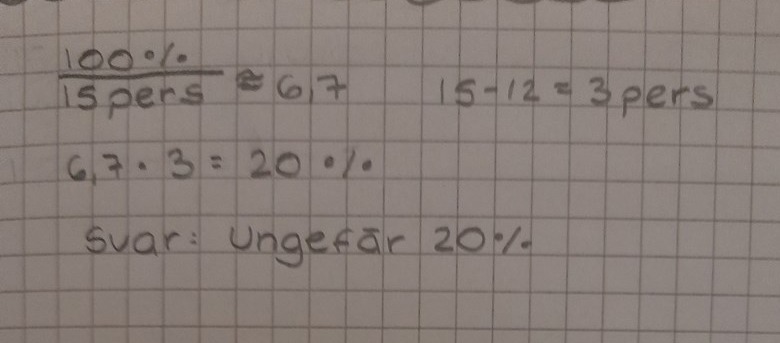 100% / 15 pers ≈ 6,7    15-12 = 3 pers
6,7 · 3 = 20 %
Svar: Ungefär 20%